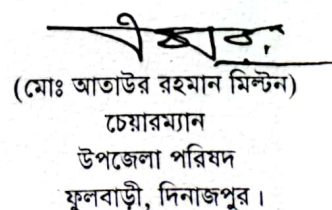 (মোঃ আতাউর রহমান মিল্টন)
চেয়ারম্যান
উপজেলা পরিষদ
ফুলবাড়ী, দিনাজপুর।